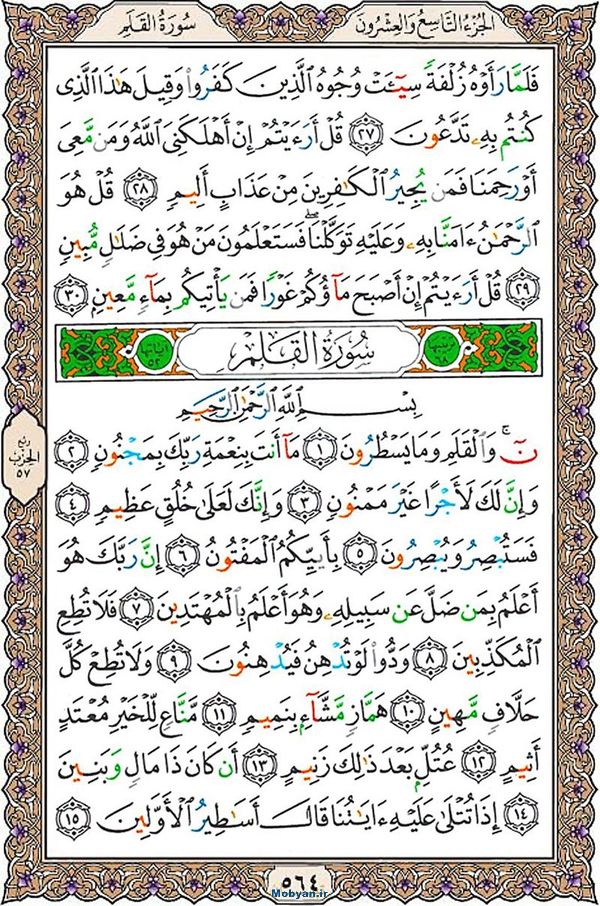 الجُزءُ التَّاسِعُ وَالعِشرُونَ
سُورَةُ القَلَم
فَلَمَّا رَأَوْهُ زُلْفَةً سِيٓـَٔتْ وُجُوهُ ٱلَّذِينَ كَفَرُوا۟ وَقِيلَ هَٰذَا ٱلَّذِى
كُنتُم بِهِۦ تَدَّعُونَ ٢٧ قُلْ أَرَءَيْتُمْ إِنْ أَهْلَكَنِىَ ٱللَّهُ وَمَن مَّعِىَ
أَوْ رَحِمَنَا فَمَن يُجِيرُ ٱلْكَٰفِرِينَ مِنْ عَذَابٍ أَلِيمٍ ٢٨ قُلْ هُوَ
ٱلرَّحْمَٰنُ ءَامَنَّا بِهِۦ وَعَلَيْهِ تَوَكَّلْنَا ۖ فَسَتَعْلَمُونَ مَنْ هُوَ فِى ضَلَٰلٍ مُّبِينٍ
٢٩ قُلْ أَرَءَيْتُمْ إِنْ أَصْبَحَ مَآؤُكُمْ غَوْرًا فَمَن يَأْتِيكُم بِمَآءٍ مَّعِينٍۭ ٣٠
سُورَةُ القَلَمِ
بِسْمِ ٱللَّهِ ٱلرَّحْمَٰنِ ٱلرَّحِيمِ
نٓ ۚ وَٱلْقَلَمِ وَمَا يَسْطُرُونَ ١ مَآ أَنتَ بِنِعْمَةِ رَبِّكَ بِمَجْنُونٍ ٢
وَإِنَّ لَكَ لَأَجْرًا غَيْرَ مَمْنُونٍ ٣ وَإِنَّكَ لَعَلَىٰ خُلُقٍ عَظِيمٍ ٤
فَسَتُبْصِرُ وَيُبْصِرُونَ ٥ بِأَييِّكُمُ ٱلْمَفْتُونُ ٦ إِنَّ رَبَّكَ هُوَ
أَعْلَمُ بِمَن ضَلَّ عَن سَبِيلِهِۦ وَهُوَ أَعْلَمُ بِٱلْمُهْتَدِينَ ٧ فَلَا تُطِعِ
ٱلْمُكَذِّبِينَ ٨ وَدُّوا۟ لَوْ تُدْهِنُ فَيُدْهِنُونَ ٩ وَلَا تُطِعْ كُلَّ
حَلَّافٍ مَّهِينٍ ١٠ هَمَّازٍ مَّشَّآءٍۭ بِنَمِيمٍ ١١ مَّنَّاعٍ لِّلْخَيْرِ مُعْتَدٍ
أَثِيمٍ ١٢ عُتُلٍّۭ بَعْدَ ذَٰلِكَ زَنِيمٍ ١٣ أَن كَانَ ذَا مَالٍ وَبَنِينَ
١٤ إِذَا تُتْلَىٰ عَلَيْهِ ءَايَٰتُنَا قَالَ أَسَٰطِيرُ ٱلْأَوَّلِينَ ١٥
ربع
الحزب
٥٧
٥٦٤
Mobyan.ir